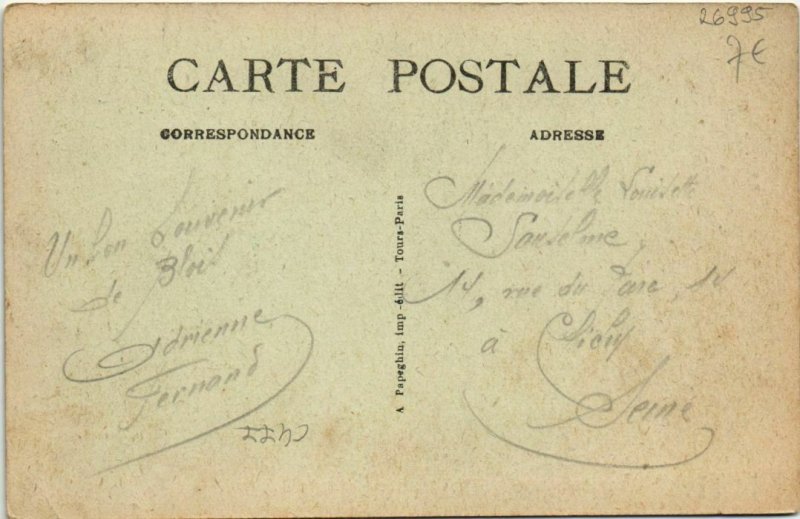 26995
7€
CARTE POSTALE
CORRESPONDANCE
ADRESSE
Un bon Souvenir
de Blois
Adrienne
Fernand
A Papeghin, imp-édit - Tours-Paris
Mademoiselle Louisette
14, rue du Parc, 14
à Clichy
Seine